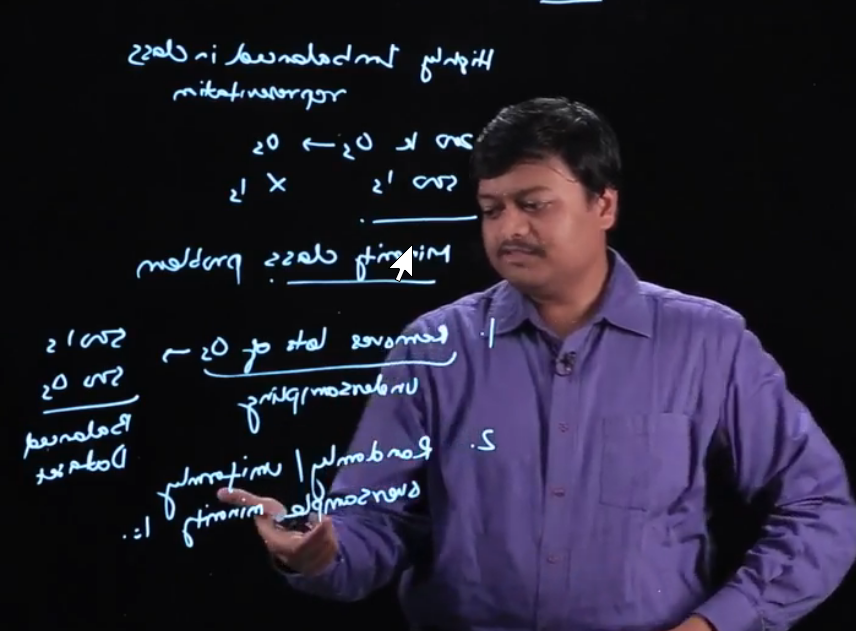 Highly Imbalanced in class
representation
K 0's → 0's
500 1's X 1's
Minority class problem
1. Removes lots of 0's → 500 1's
undersampling 500 0's
Balanced
Dataset
2. Randomly / uniformly
oversample minority